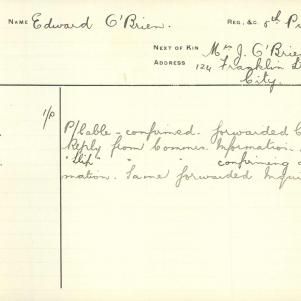 NAME Edward O'Brien. REG., &C. 8th P
NEXT OF KIN Mrs J. O'Brie
ADDRESS 124 Franklin
City.
1/P
P/Cable - confirmed. forwarded
Reply from Commes. Information.
"Slip" " " confirming
mation. Same forwarded Inqui